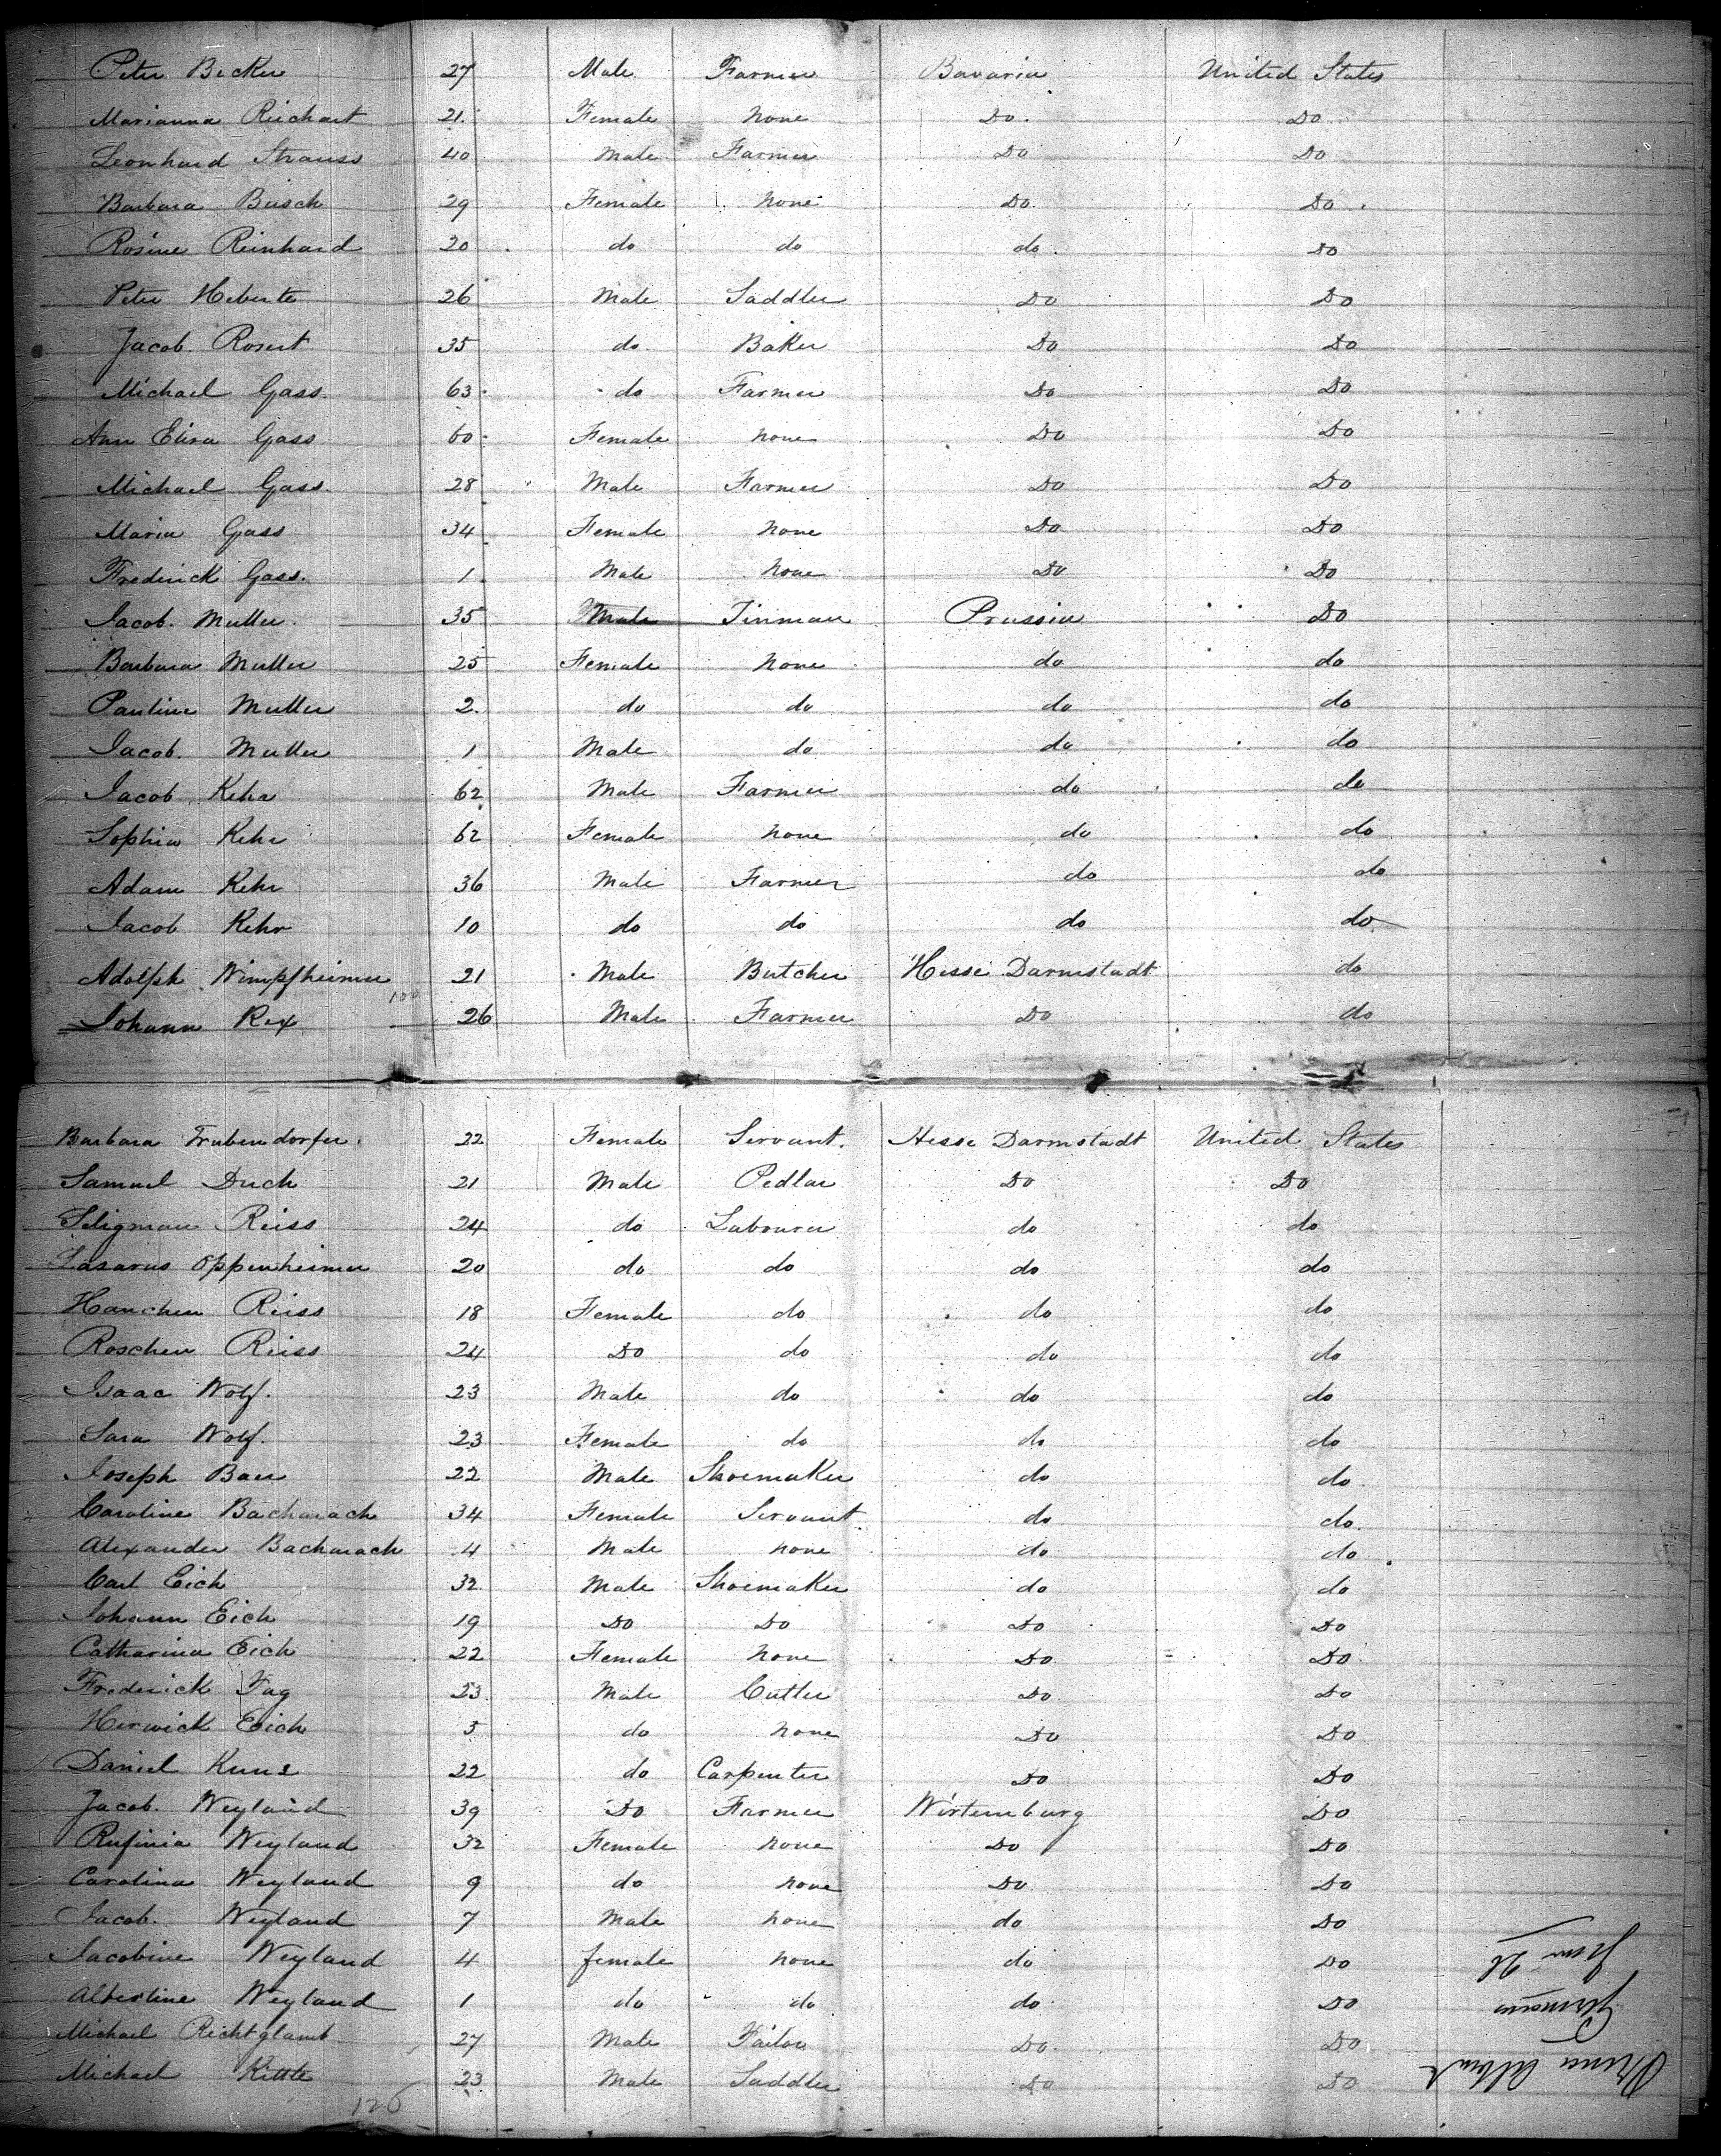 Peter Becker 27 Male Farmer Bavaria United States
Marianna Reichart 21. Female None Do. Do
Leonhard Strauss 40 Male Farmer Do Do
Barbara Busch 29 Female None Do Do
Rosine Reinhard 20 do do do Do
Peter 26 Male Saddler Do Do
Jacob. 35 do Baker Do Do
Michael Gass. 63 do Farmer Do Do
Ann Elisa Gass 60 Female None Do Do
Michael Gass. 28 Male Farmer Do Do
Maria Gass 34 Female None Do Do
Frederick Gass. 1 Male None Do Do
Jacob. Muller. 35 Male Tinman Prussia Do
Barbara Muller 25 Female None do do
Pauline Muller 2. do do do do
Jacob. Muller 1 Male do do do
Jacob Kehr 62 Male Farmer do do
Sophia Kehr 62 Female None do do
Adam Kehr 36 Male Farmer do do
Jacob Kehr 10 do do do do
Adolph Wimpfheimer 21 Male Butcher Hesse Darmstadt do
100
Johann Rex 26 Male Farmer Do do
Barbara Trubendorfer. 22 Female Servant. Hesse Darmstadt United States
Samuel Duch 21 Male Pedlar Do Do
Seligman Reiss 24 do Labourer do do
Lasarus Oppenheimer 20 do do do do
Hanchen Reiss 18 Female do do do
Roschen Reiss 24 Do do do do
Isaac Wolf. 23 Male do do do
Sara Wolf. 23 Female do do do
Joseph Baer 22 Male Shoemaker do do
Caroline Bacharach 34 Female Servant do do
Alexander Bacharach 4 Male None do do
Carl Eich 32 Male Shoemaker do do
Johann Eich 19 Do Do Do Do
Catharina Eich 22 Female None Do Do
Frederick Fag 23. Male Cutler Do Do
Herwick Eich 3 do None Do Do
Daniel Kunz 22 do Carpenter Do Do
Jacob. Weyland 39 Do Farmer Wirtemburg Do
Rufinia Weyland 32 Female None Do Do
Carolina Weyland 9 do None Do Do
Jacob. Weyland 7 Male None do Do
Jacobine Weyland 4 female None do Do
Albertine Weyland 1 do do do Do
Michael Richtglamb 27 Male Tailor Do. Do
Michael Kittle 23 Male Saddler Do Do
126
Prince Albert